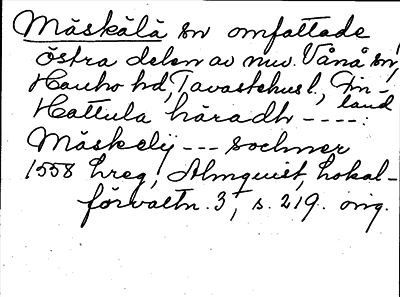 Mäskälä sn omfattade
östra delen av nuv. Vånå sn,
Hauho hd, Tavastehus l., Fin-
land
Hattula häradh ----:
Mäskely --- sochner
1558 hreg, Almquist, Lokal-
förvaltn. 3, s. 219. orig.